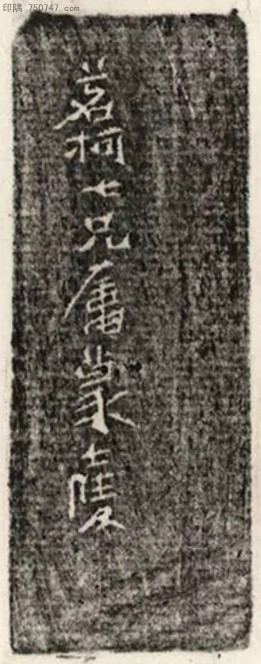 印隅 .750747.com
茗柯七兄属蒙陵